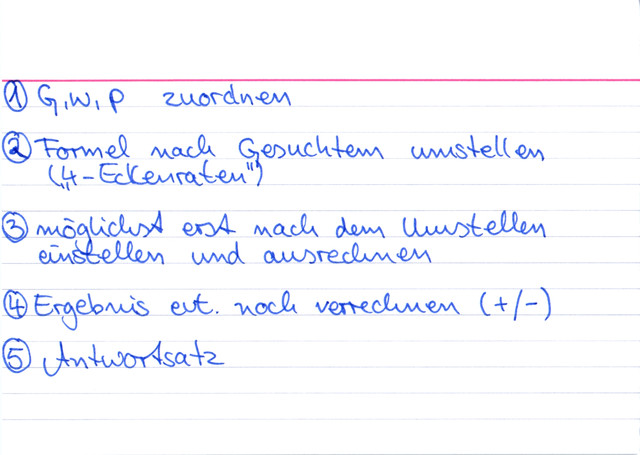 ① G, W, p zuordnen
② Formel nach Gesuchtem umstellen
(„4-Eckenraten")
③ möglichst erst nach dem Umstellen
einstellen und ausrechnen
④ Ergebnis evt. noch verrechnen (+/-)
⑤ Antwortsatz